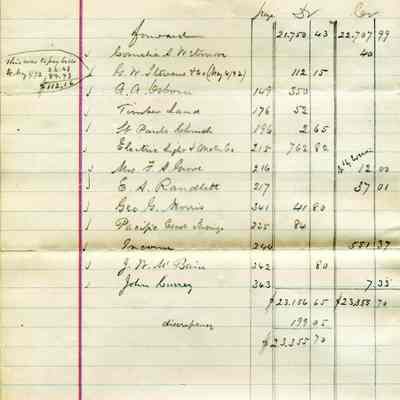 Page Dr Cr
forward 21,750 43 22,707 99
This was to pay bills
to Aug 4/92
89.93
$112.15
Cornelia & W Stover 40
G. W. Stevens & Co (Aug 4/92) 112 15
A. A. Osborn 149 350
Timber Land 176 52
St Pauls Church 196 2 65
Electric Light & Motor Co 215 762 82
Mrs. F. S. Grove 216 12 00
E. S. Randlett 217 37 01
Geo G. Morris 341 41 80
Pacific Coast Savings 225 84
Income 244 551 37
J. W. McBain 342 80
John Currey 343 7 33
$23,156 65 $23,355 70
discrepancy 199 05
$23,355 70